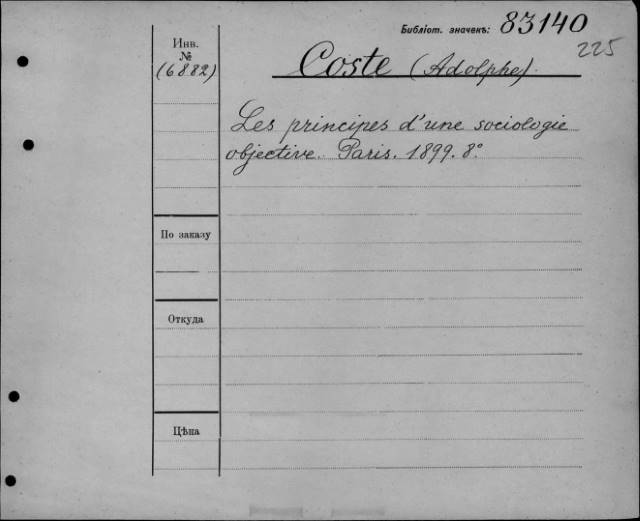 Библіот. значекъ: 83140
225
Инв.
№
(6882)
Coste (Adolphe).
Les principes d'une sociologie
objective. Paris. 1899. 8°
По заказу
Откуда
Цѣна